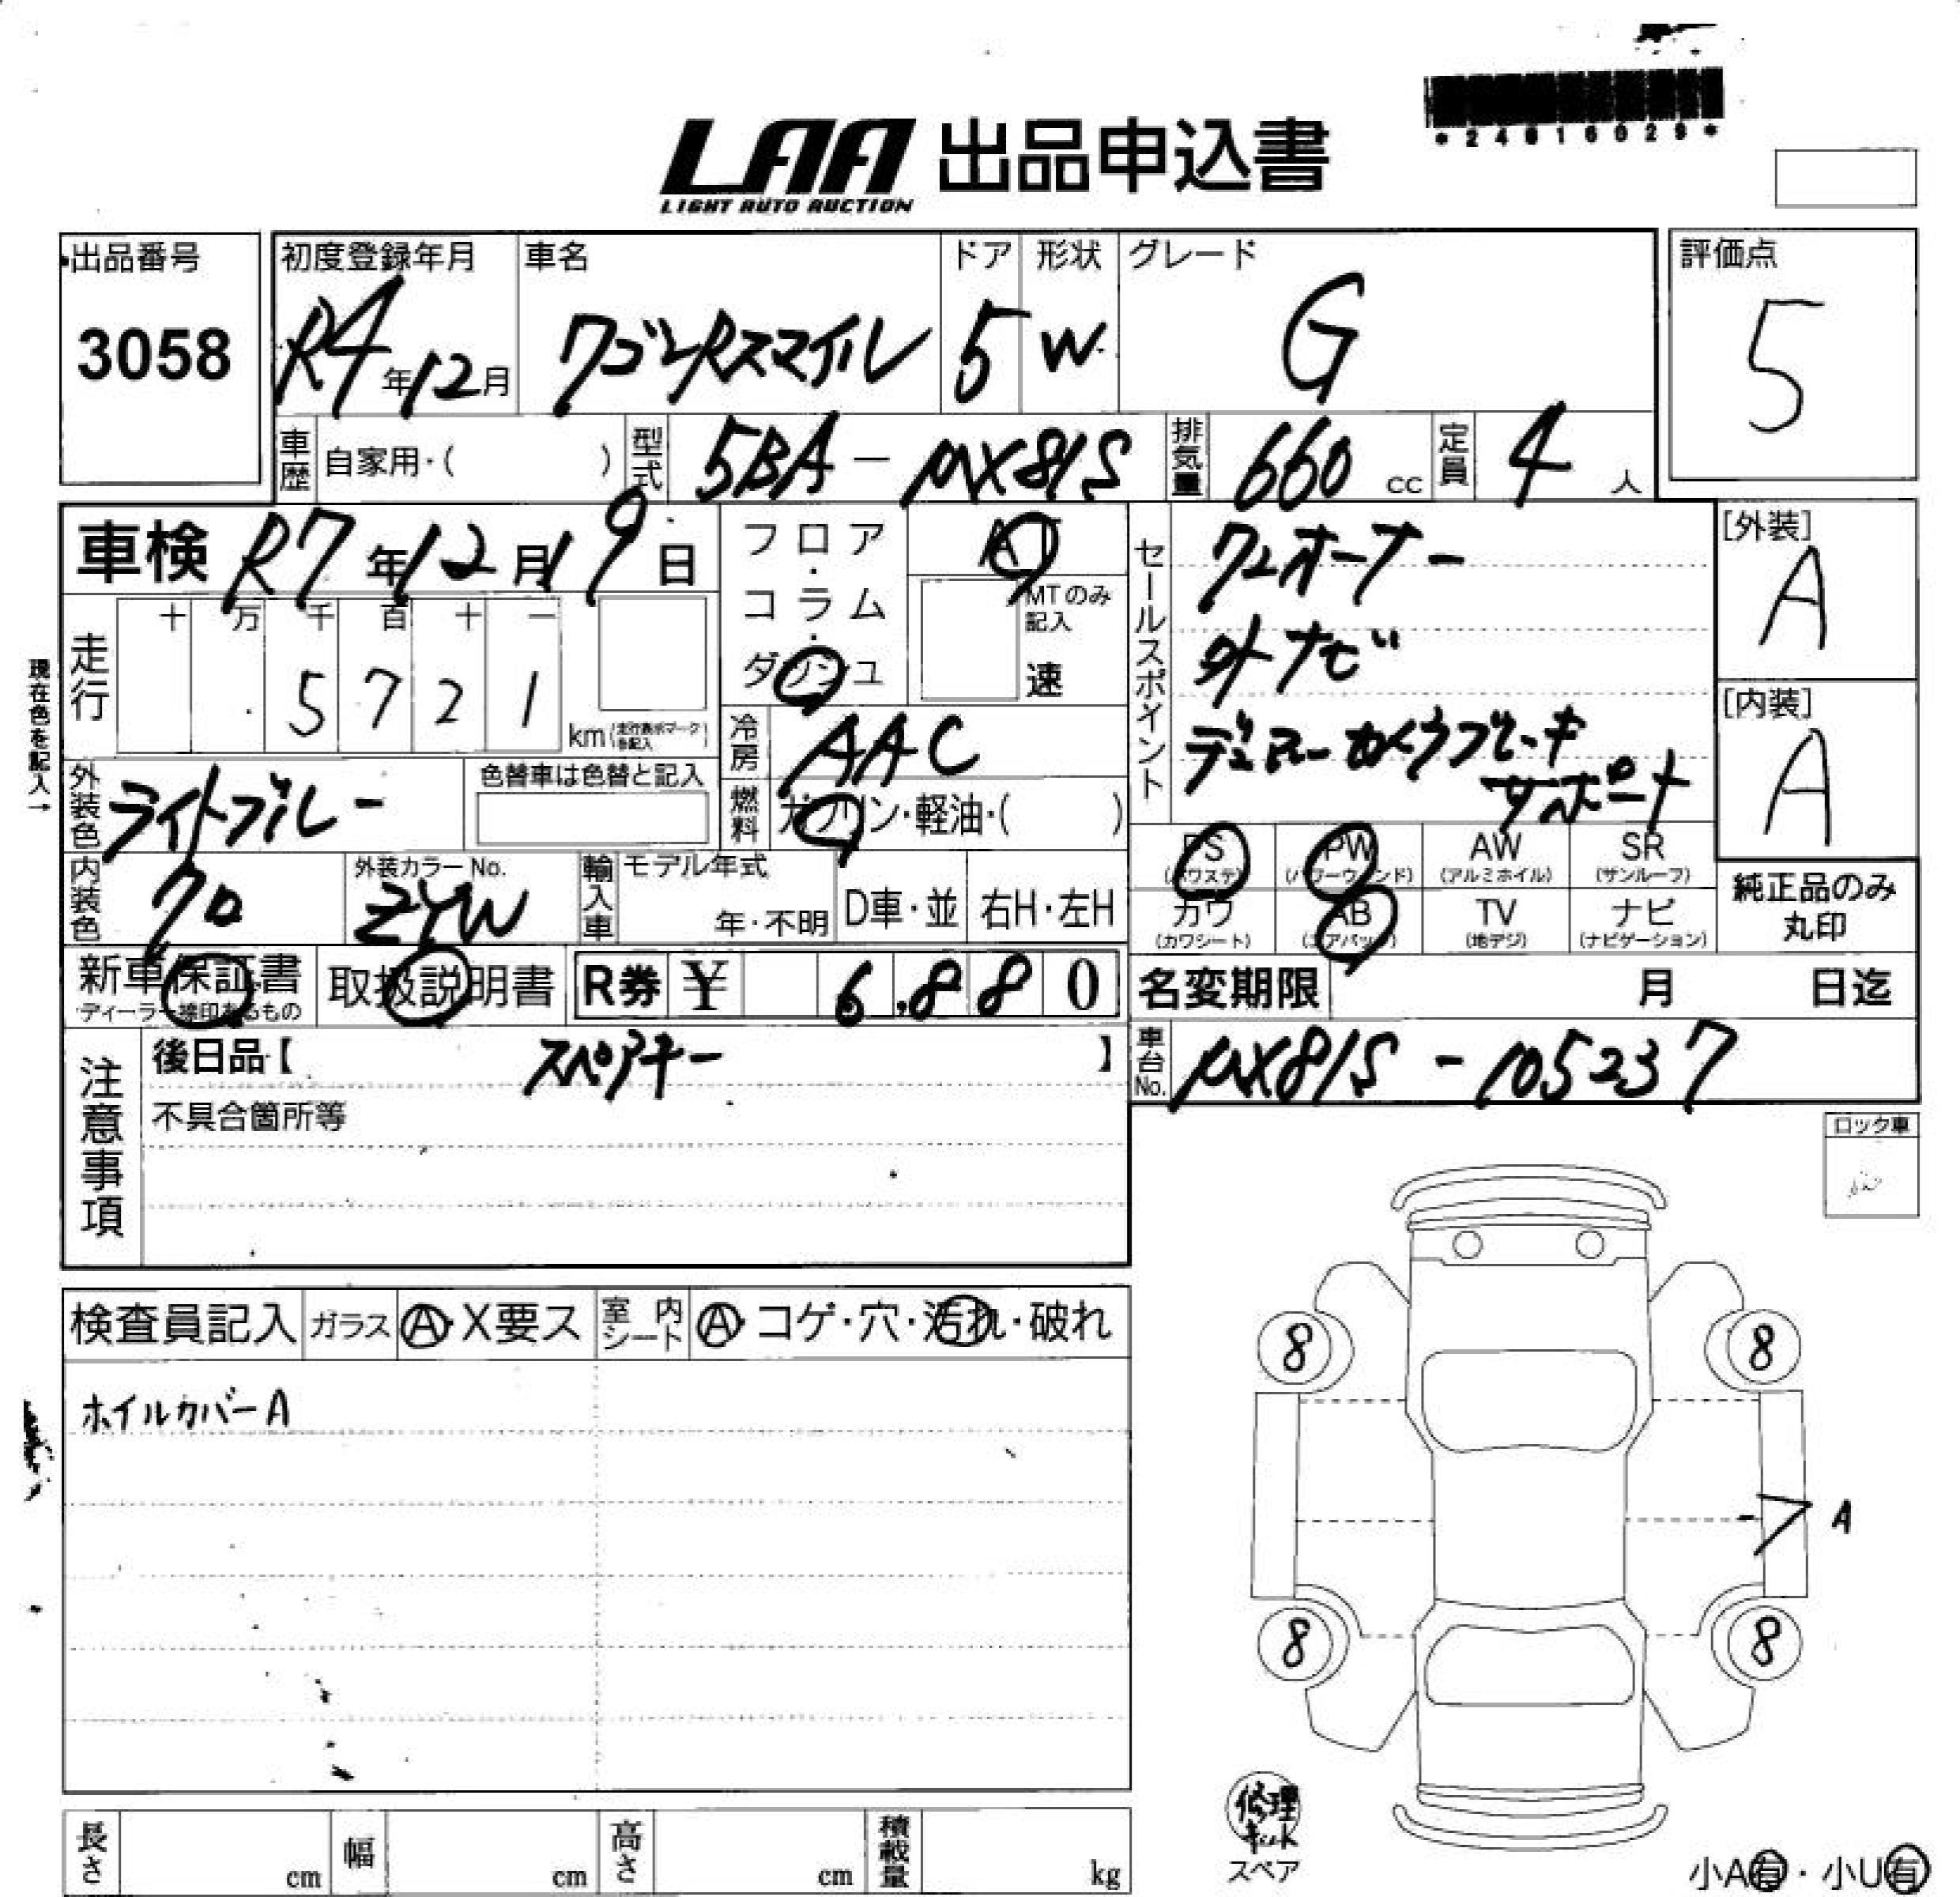 *24816029*
LAA 出品申込書
LIGHT AUTO AUCTION
出品番号
3058
初度登録年月
R4年12月
車名
ワゴンRスマイル
ドア
5
形状
W
グレード
G
評価点
5
車歴 自家用・( )
型式 5BA-MX81S
排気量 660 cc
定員 4 人
車検 R7年12月19日
フロア・コラム・ダッシュ
AT
MTのみ記入
速
セールスポイント
ワンオーナー
外ナビ
デュアルカメラブレーキ
サポート
[外装]
A
[内装]
A
現在色を記入→
走行
十 万 千 百 十 一
5 7 2 1
km(走行表示マークを記入)
冷房 AAC
燃料 ガソリン・軽油・( )
外装色 ライトブルー
色替車は色替と記入
内装色 クロ
外装カラーNo.
ZYW
輸入車
モデル年式
年・不明
D車・並
右H・左H
PS
(パワステ)
PW
(パワーウィンド)
AW
(アルミホイル)
SR
(サンルーフ)
カワ
(カワシート)
AB
(エアバック)
TV
(地デジ)
ナビ
(ナビゲーション)
純正品のみ
丸印
新車保証書
ディーラー捺印あるもの
取扱説明書
R券 ¥ 6,880
名変期限 月 日迄
注意事項
後日品【 スペアキー 】
不具合箇所等
車台No. MX81S-105237
ロック車
検査員記入
ガラス
A・X要ス
室内シート
A・コゲ・穴・汚れ・破れ
ホイルカバーA
8
8
A
8
8
修理
キット
スペア
小A有・小U有
長さ cm
幅 cm
高さ cm
積載量 kg